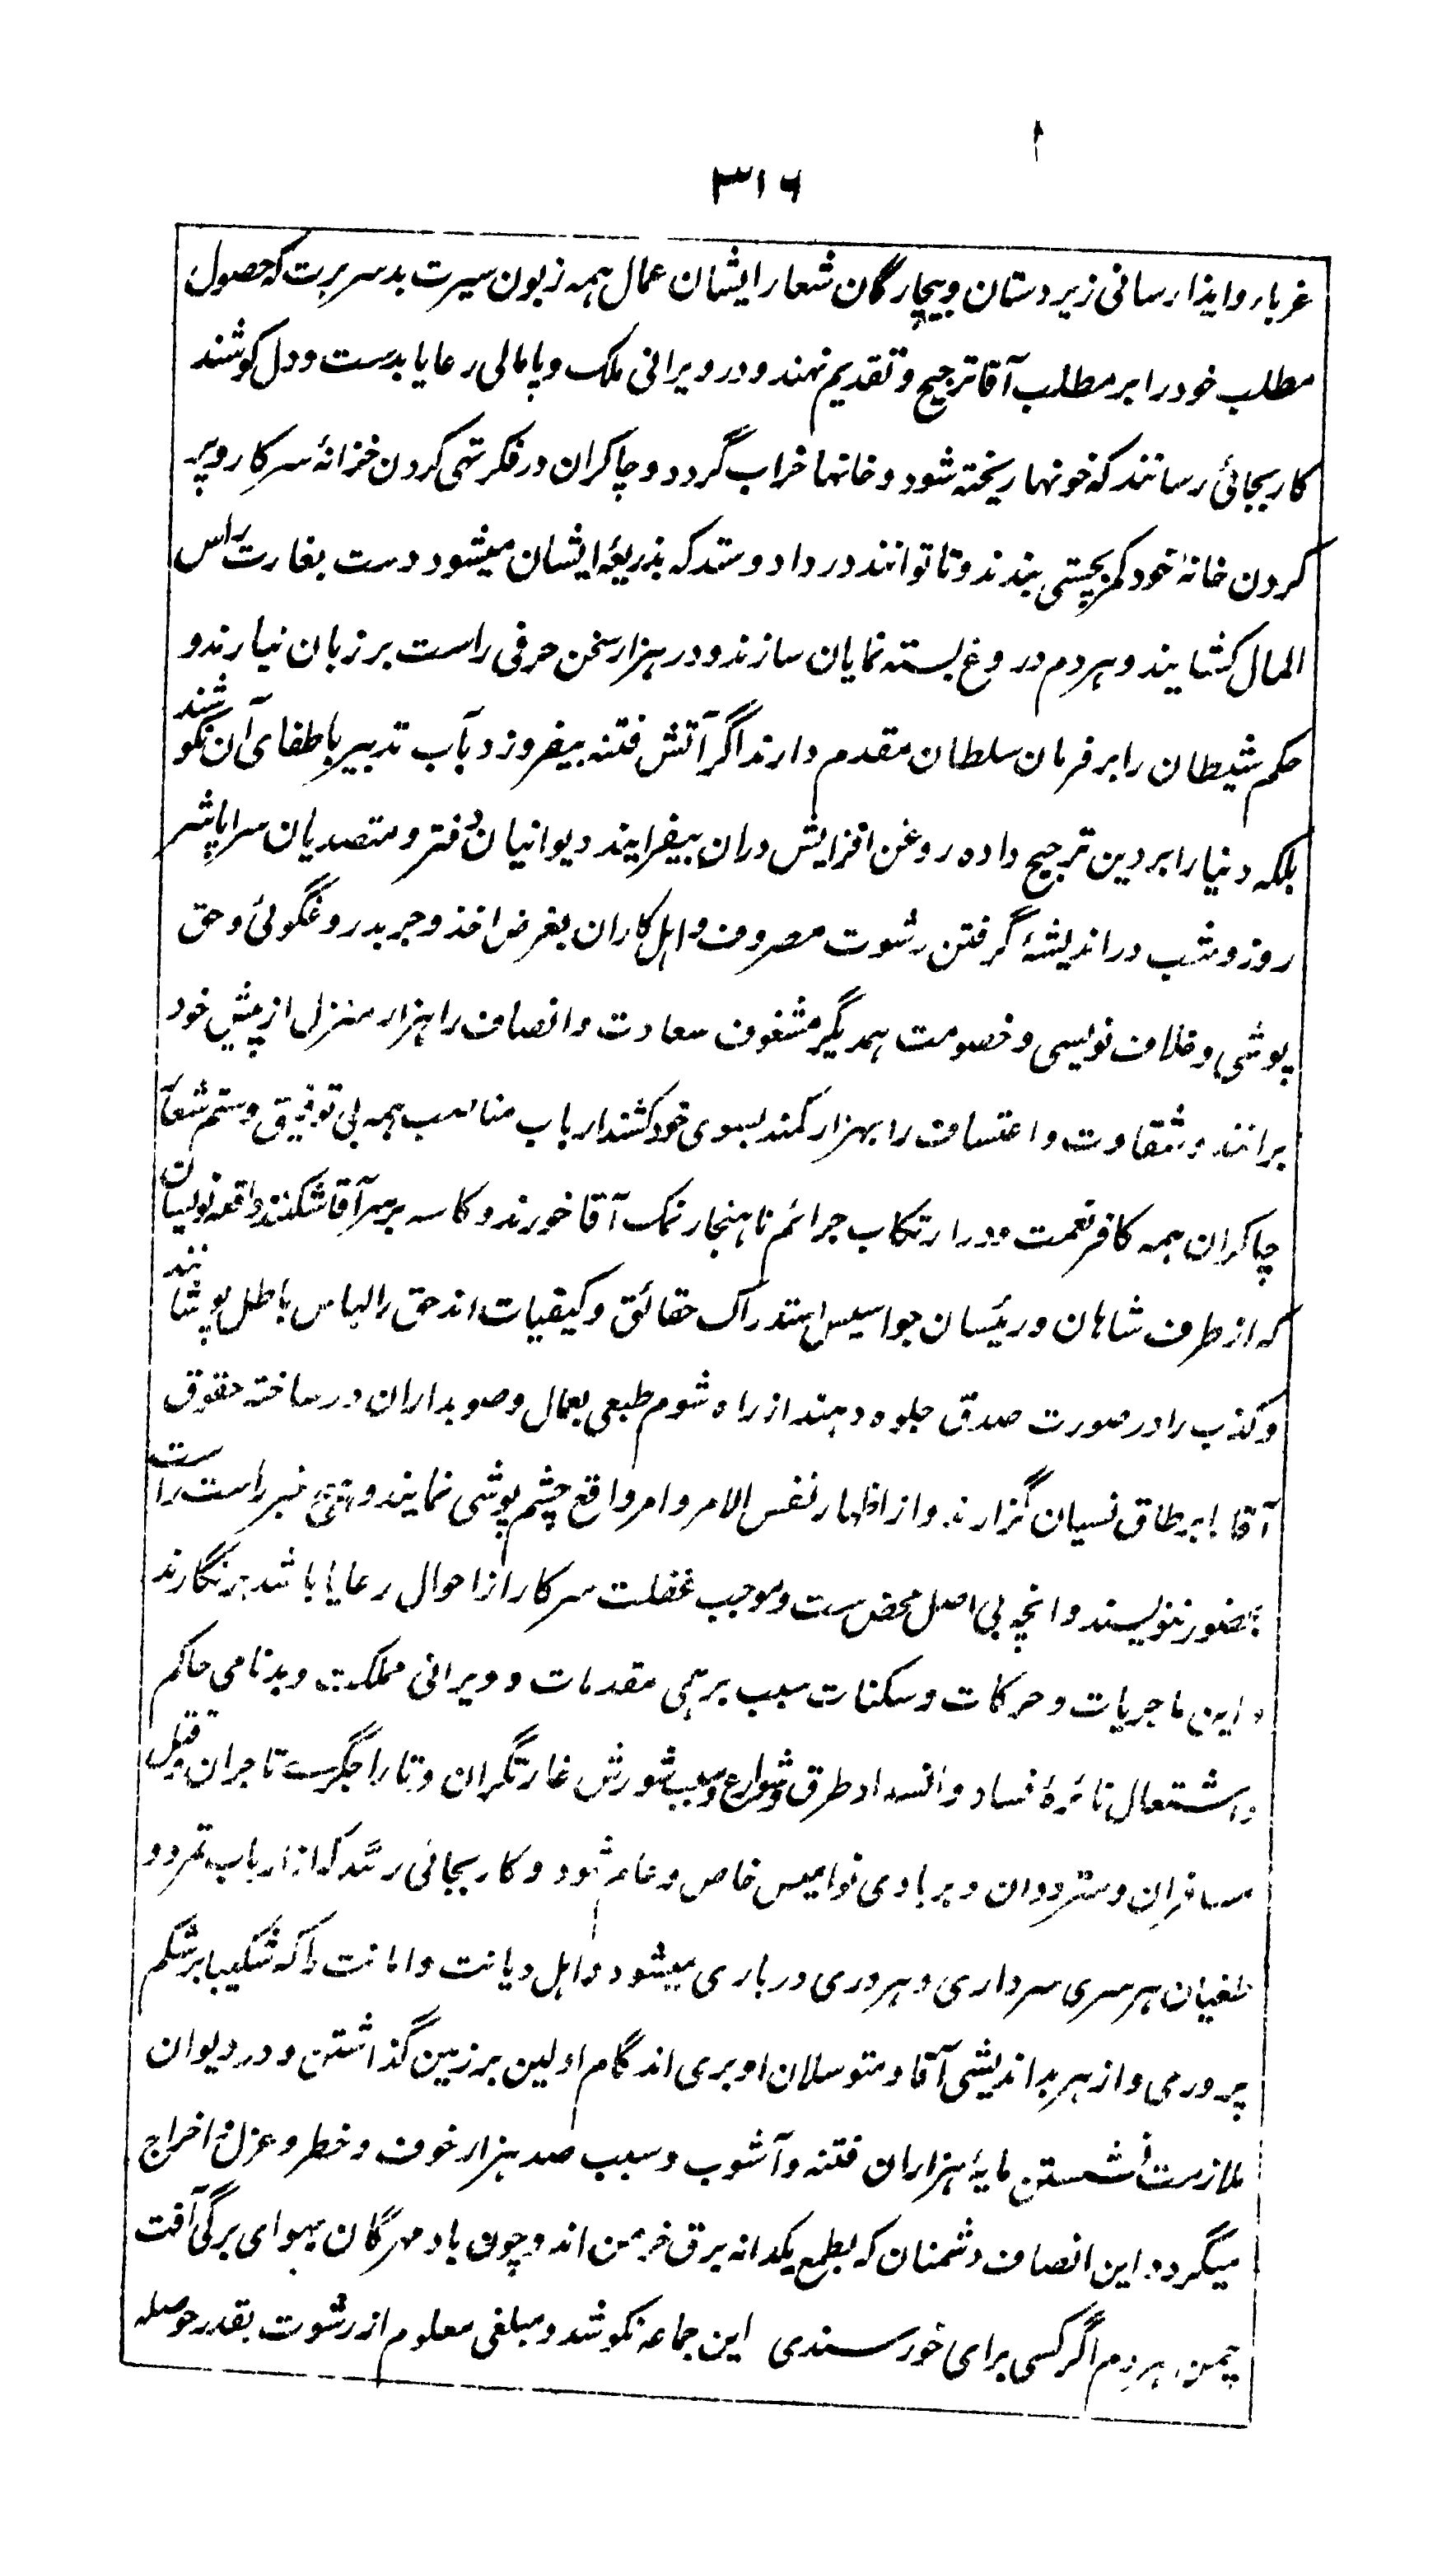 ۳۱۶
غرباء و ایذا رسانی زیردستان و بیچارگان شعار ایشان عمال همه زبون سیرت بد سریرت که حصول
مطلب خود را بر مطلب آقا ترجیح و تقدیم نهند و در ویرانی ملک و پامالی رعایا بدست و دل کوشند
کار بجائی رسانند که خونها ریخته شود و خانها خراب گردد و چاکران در فکر تهی کردن خزانهٔ سرکار و پر
کردن خانهٔ خود کمر بچستی بندند و تا توانند در داد و ستد که بذریعهٔ ایشان میشود دست بغارت راس
المال کشایند و هر دم دروغ بسته نمایان سازند و در هزار سخن حرفی راست بر زبان نیارند و
حکم شیطان را بر فرمان سلطان مقدم دارند اگر آتش فتنه بیفروزد بآب تدبیر باطفای آن نکوشند
بلکه دنیا را بر دین ترجیح داده روغن افزایش دران بیفزایند دیوانیان دفتر و متصدیان سراپا شر
روز و شب در اندیشهٔ گرفتن رشوت مصروف و اهل کاران بغرض اخذ و جر بدروغگوئی و حق
پوشی و خلاف نویسی و خصومت همدیگر مشغوف سعادت و انصاف را هزار منزل از پیش خود
برانند و شقاوت و اعتساف را بهزار کمند بسوی خود کشند ارباب مناصب همه بی توفیق و ستم شعار
چاکران همه کافر نعمت و در ارتکاب جرائم ناهنجار نمک آقا خورند و کاسه بر سر آقا شکنند واقعه نویسان
که از طرف شاهان و رئیسان جواسیس استدراک حقائق و کیفیات اند حق را لباس باطل پوشانند
و کذب را در صورت صدق جلوه دهند از راه شوم طبعی بعمال و صوبداران در ساخته حقوق
آقا را بر طاق نسیان گزارند و از اظهار نفس الامر و امر واقع چشم پوشی نمایند و هیچ خبر راست راست
بحضور ننویسند و انچه بی اصل محض ست و موجب غفلت سرکار از احوال رعایا باشد بر نگارند
و این ماجریات و حرکات و سکنات سبب برهمی مقدمات و ویرانی مملکت و بدنامی حاکم
و اشتعال نائرهٔ فساد و انسداد طرق و شوارع و سبب شورش غارتگران و تاراجگرے تاجران قتیل
مسافران و متردوان و بربادی نوامیس خاص و عام شود و کار بجائی رسد که از ارباب تمرد و
طغیان هر سری سرداری و هر دری درباری میشود و اهل دیانت و امانت را که شکیبا بر شکم
پروری و از هر بد اندیشی آقا و متوسلان او بری اند گام اولین بر زمین گذاشتن و در دیوان
ملازمت نشستن مایهٔ هزاران فتنه و آشوب و سبب صد هزار خوف و خطر و عزل و اخراج
میگردد این انصاف دشمنان که بطمع یکدانه برق خرمن اند و چون باد مهرگان بهوای برگی آفت
چمن هر دم اگر کسی برای خورسندی این جماعه نکوشد و مبلغی معلوم از رشوت بقدر حوصله